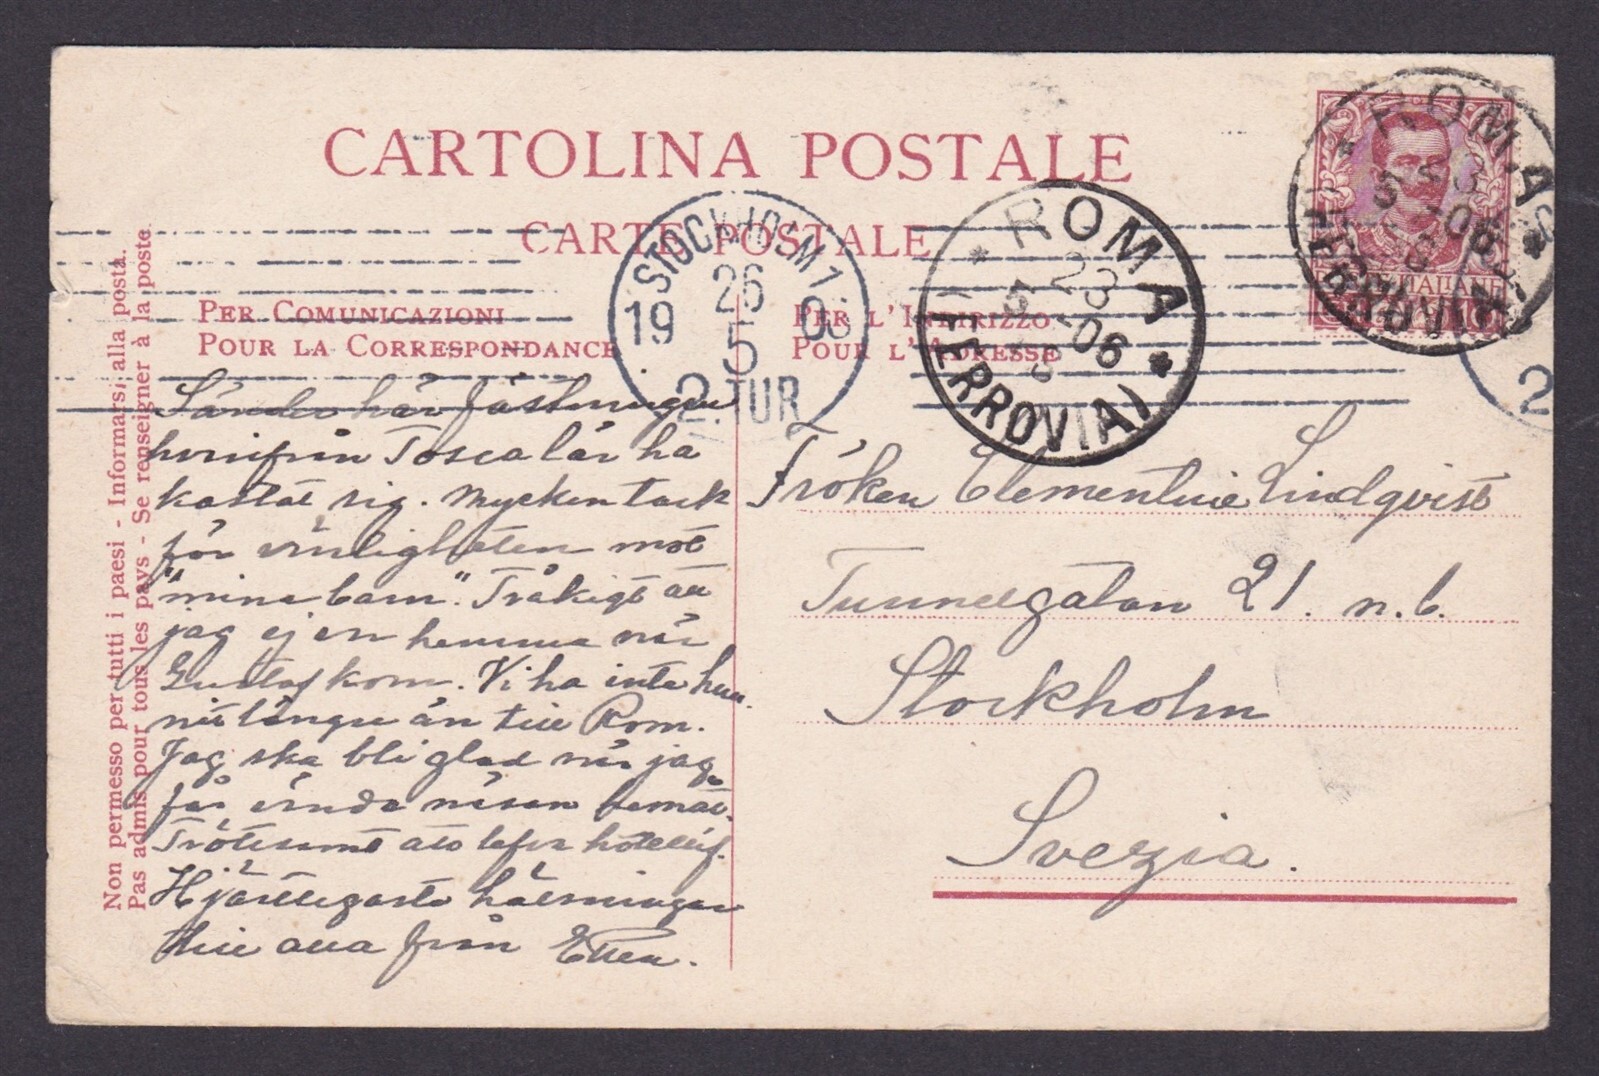 CARTOLINA POSTALE
CARTE POSTALE
PER COMUNICAZIONI
POUR LA CORRESPONDANCE
PER L'INDIRIZZO
POUR L'ADRESSE
Non permesso per tutti i paesi - Informarsi alla posta.
Pas admis pour tous les pays - Se renseigner à la poste.
STOCKHOLM 1
26
19 5 06
2. TUR
* ROMA *
23
5 -06
(FERROVIA)
* ROMA *
23
5 -06
(FERROVIA)
ITALIANE
2
Sänder här
härifrån Tosca lär ha
kastat sig. Mycken tack
för vänligheten mot
"mina barn". Tråkigt att
jag ej en hemma när
Gustaf kom. Vi ha inte
längre än till Rom.
Jag ska bli glad när jag
får vända näsan hemåt.
Tröttsamt att
Hjärtligaste hälsningar
till alla från Ellen.
Fröken Clementine Lindqvist
Tunnelgatan 21. n.b.
Stockholm
Svezia.